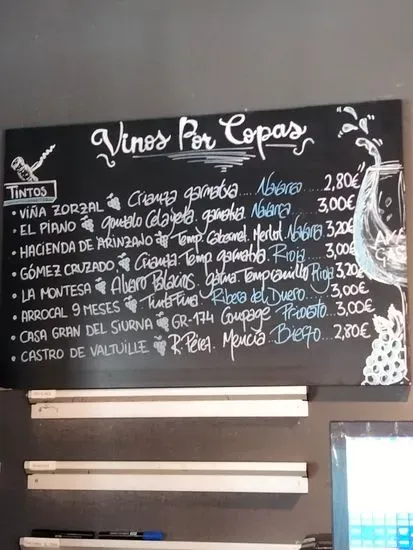 Vinos Por Copas
TINTOS
• VIÑA ZORZAL Crianza garnatxa Navarra.... 2,80€
• EL PIANO gonzalo Celayeta. garnatxa Navarra 3,00€
• HACIENDA DE ARINZANO Temp. Cabernet. Merlot Navarra 3,20€
• GÓMEZ CRUZADO Crianza. Temp garnatxa Rioja.... 3,00€
• LA MONTESA Alvaro Palacios. Tempranillo Rioja 3,20€
• ARROCAL 9 MESES Tinta Fina Ribera del Duero... 3,00€
• CASA GRAN DEL SIURNA GR-174 Coupage Priorato... 3,00€
• CASTRO DE VALTUILLE R. Pérez. Mencía Bierzo... 2,80€